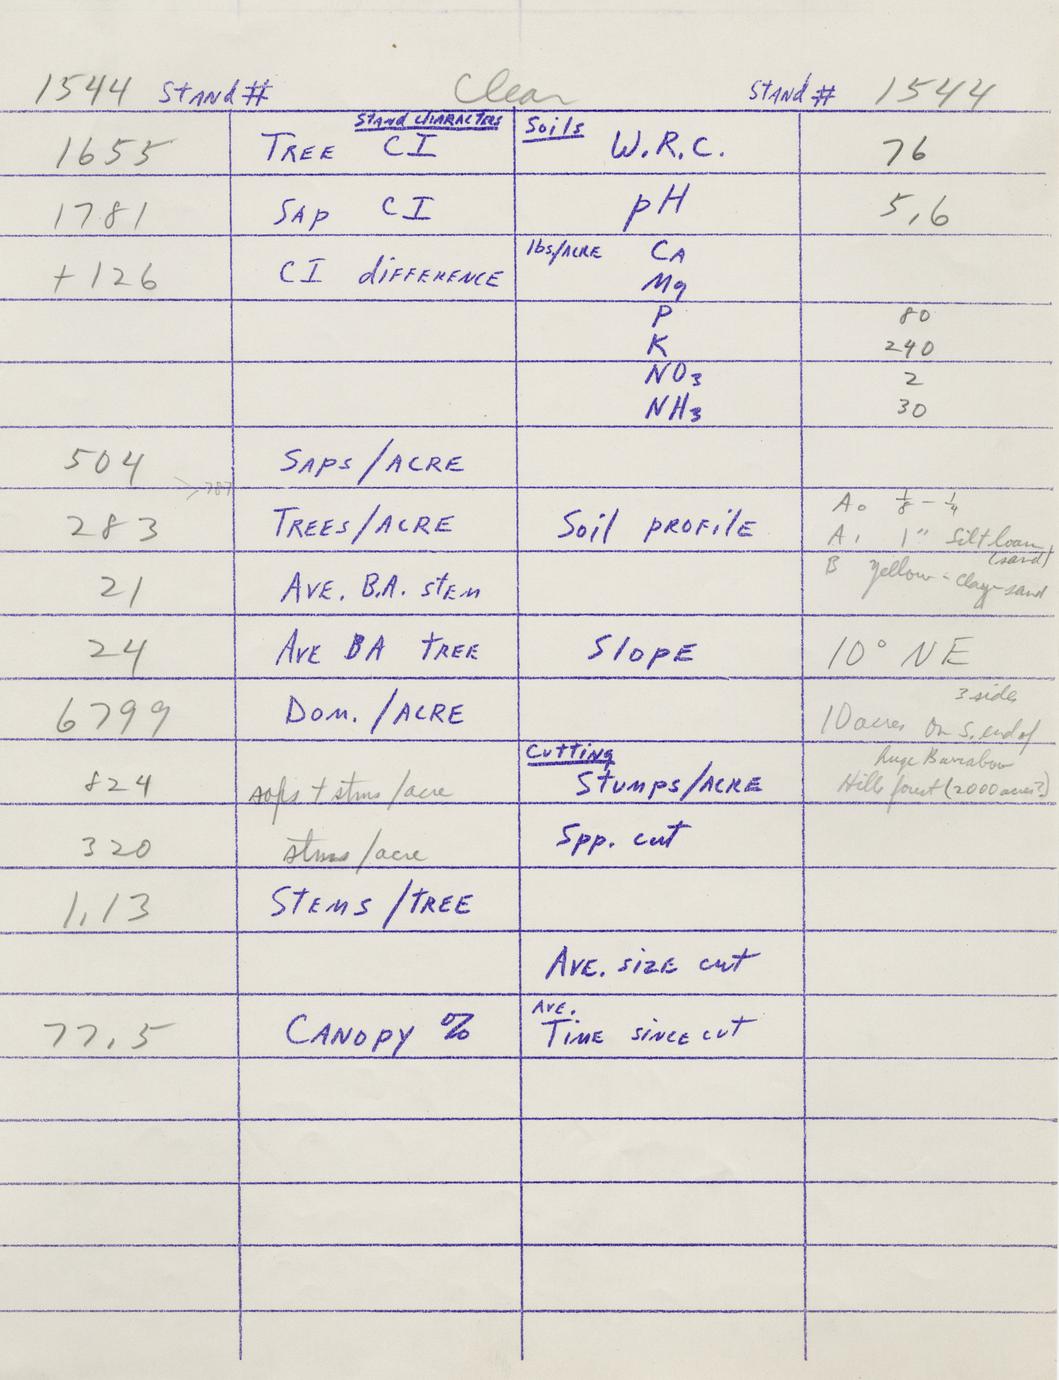 1544 STAND# Clear STAND# 1544
STAND CHARACTERS Soils
1655 TREE CI W.R.C. 76
1781 SAP CI pH 5.6
lbs/ACRE CA
+126 CI diFFERENCE
Mg
P 80
K 240
NO3 2
NH3 30
504 SAPS/ACRE
>787
A0 1/8 - 1/4
283 TREES/ACRE Soil PROFILE
A1 1" Silt loam
(sand)
B Yellow - clay-sand
21 AVE. B.A. STEM
24 AVE BA TREE SlOPE 10° NE
3 sides
6799 DOM./ACRE 10 acres on S. end of
Cutting huge Baraboo
824 saps + stms/acre STUMPS/ACRE Hills forest (2000 acres?)
320 stms/acre Spp. cut
1.13 STEMS/TREE
AVE. SIZE cut
AVE.
77.5 CANOPY % TIME SINCE cut